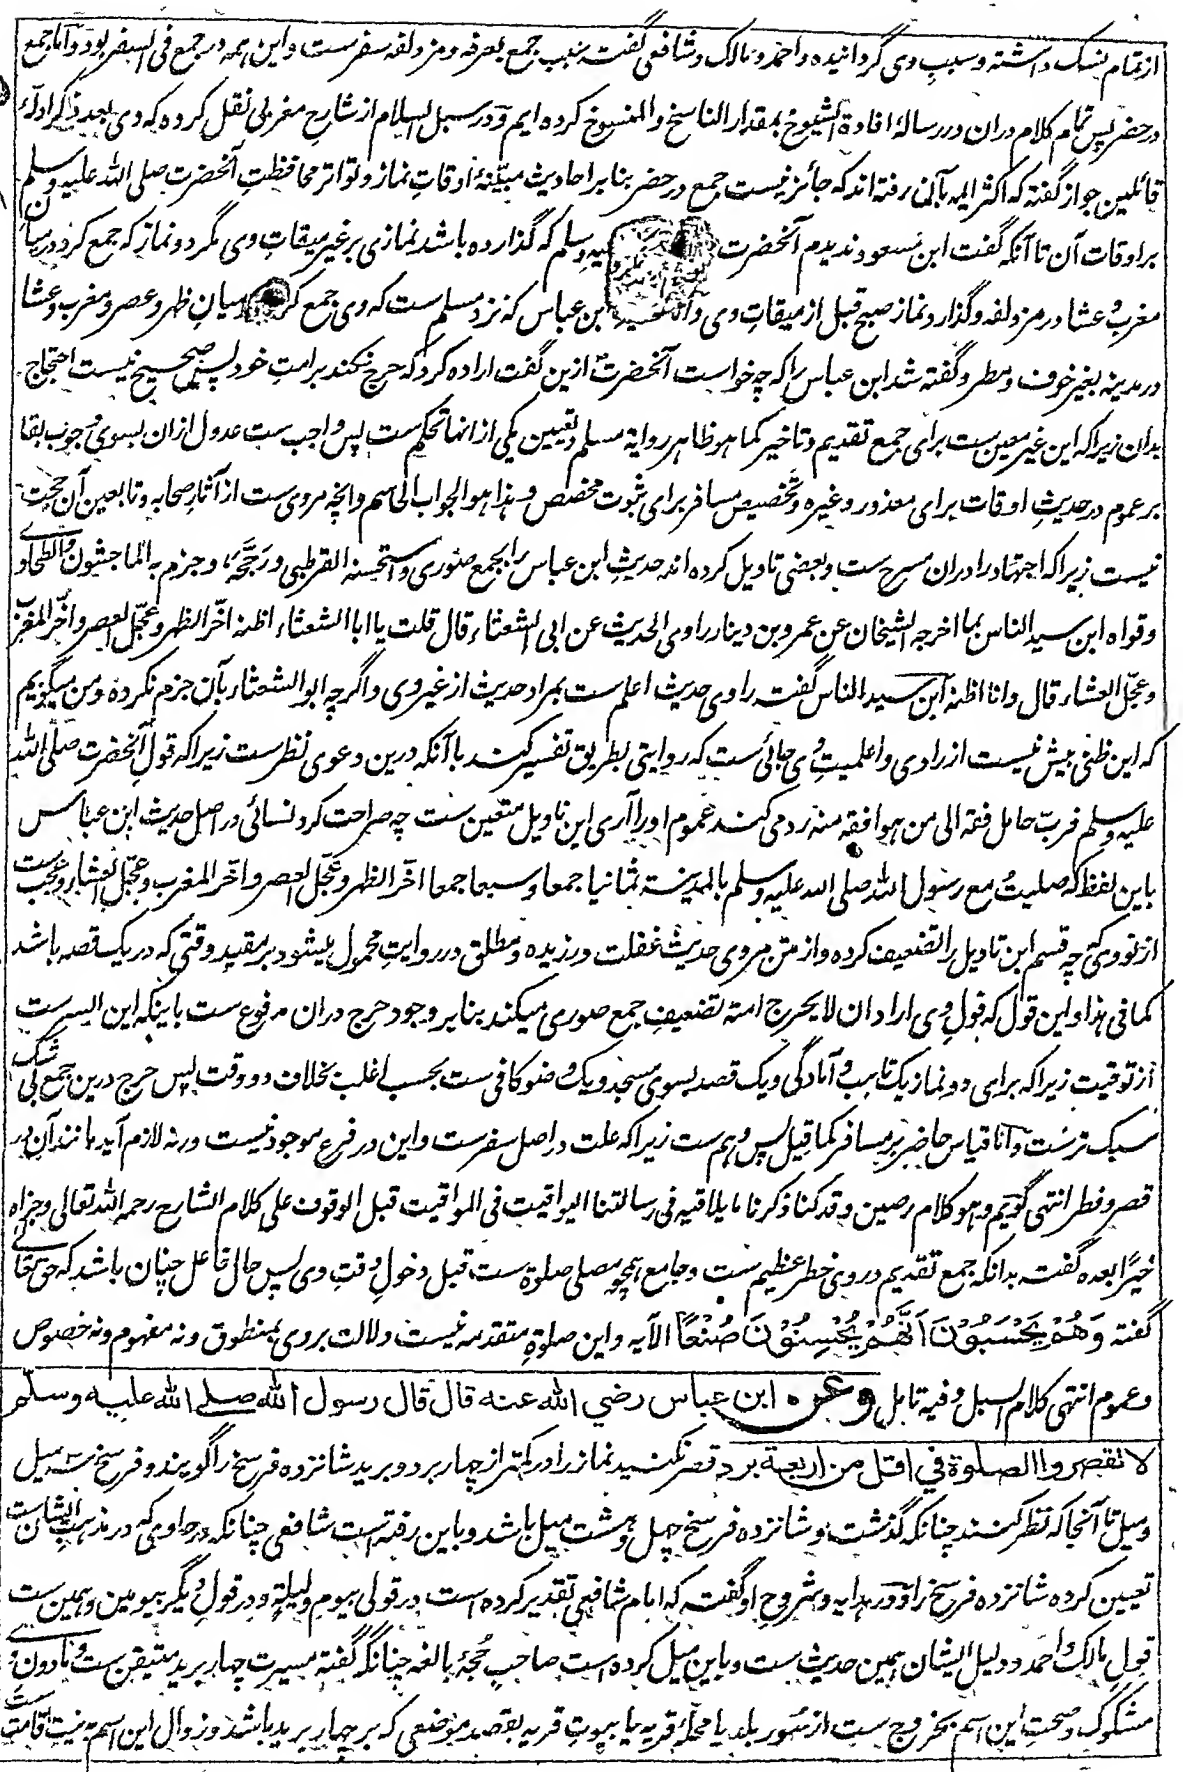 از تمام نسک داشته و سبب وی گردانیده و احمد و مالک و شافعی گفت سبب جمع بعرفه و مزدلفه سفرست و این همه در جمع فی السفر بود و اما جمع
در حضر پس تمام کلام دران در رسالهٔ افادة الشیوخ بمقدار الناسخ و المنسوخ کرده ایم و در سبل السلام از شارح مغربی نقل کرده که وی بعد ذکر ادلهٔ
قائلین جواز گفته که اکثر ایمه بآن رفته اند که جائز نیست جمع در حضر بنا بر احادیث مبیّنهٔ اوقاتِ نماز و تواتر محافظتِ آنحضرت صلی الله علیه وسلم
بر اوقات آن تا آنکه گفت ابن مسعود ندیدم آنحضرت علیه وسلم که گذارده باشد نمازی بر غیر میقاتِ وی مگر دو نماز که جمع کرد در میان
مغرب و عشا در مزدلفه و گذارد نماز صبح قبل از میقاتِ وی و ابن عباس که نزد مسلم ست که وی جمع کرد میانِ ظهر و عصر و مغرب و عشا
در مدینه بغیر خوف و مطر و گفته شد ابن عباس را که چه خواست آنحضرت ازین گفت اراده کرد که حرج نکند بر امتِ خود پس صحیح نیست احتجاج
بدان زیرا که این غیر معین ست برای جمع تقدیم و تاخیر کما هو ظاهر روایة مسلم و تعیین یکی از انها تحکم ست پس واجب ست عدول ازان بسوی وجوب بقا
بر عموم در حدیثِ اوقات برای معذور و غیره و تخصیص مسافر برای ثبوت مخصص و هذا هو الجواب الحاسم و انچه مروی ست از آثارِ صحابه و تابعین آن حجت
نیست زیرا که اجتهاد را دران مسرح ست و بعضی تاویل کرده اند حدیثِ ابن عباس را بجمع صوری و استحسنه القرطبی و رجّحه، و جزم به الماجشون و الطحاوی
و قواه ابن سید الناس بما اخرجه الشیخان عن عمرو بن دینار راوی الحدیث عن ابی الشعثاء قال قلت یا ابا الشعثاء اظنه اخّر الظهر و عجّل العصر و اخّر المغرب
و عجّل العشاء قال و انا اظنه ابن سید الناس گفت راوی حدیث اعلم ست بمراد حدیث از غیر وی و اگرچه ابو الشعثاء بآن جزم نکرده و من میگویم
که این ظنی بیش نیست از راوی و اعلمیتِ وی جائی ست که روایتی بطریق تفسیر کند با آنکه درین دعوی نظرست زیرا که قولِ آنحضرت صلی الله
علیه وسلم فربّ حامل فقه الی من هو افقه منه رد می کند عموم او را آری این تاویل متعین ست چه صراحت کرد نسائی در اصل حدیث ابن عباس
باین لفظ که صلیتُ مع رسول الله صلی الله علیه وسلم بالمدینة ثمانیا جمعا و سبعا جمعا اخّر الظهر و عجّل العصر و اخّر المغرب و عجّل العشاء و عجب ست
از نووی که چه قسم این تاویل را تضعیف کرده و از متن مروی حدیث غفلت ورزیده و مطلق در روایت محمول میشود بر مقید وقتی که در یک قصه باشد
کما فی هذا و این قول که قولِ وی اراد ان لا یحرج امته تضعیفِ جمع صوری میکند بنا بر وجود حرج دران مرفوع ست باینکه این ایسر ست
از توقیت زیرا که برای دو نماز یک تاهب و آمادگی و یک قصد بسوی مسجد و یک وضو کافی ست بحسب اغلب بخلاف دو وقت پس حرج درین جمع بی شک
سبک ترست و اما قیاس حاضر بر مسافر کما قیل پس وهم ست زیرا که علت در اصل سفرست و این در فرع موجود نیست ورنه لازم آید مانند آن در
قصر و فطر انتهی گویم و هو کلام رصین و قد کنا ذکرنا ما یلاقیه فی رسالتنا الیواقیت فی المواقیت قبل الوقوف علی کلام الشارح رحمه الله تعالی و جزاه
خیرًا بعده گفت بدانکه جمع تقدیم در وی خطر عظیم ست و جامع همچو مصلی صلوة ست قبل دخولِ وقتِ وی پس حال فاعل چنان باشد که حق تعالی
گفته وَهُمْ یَحْسَبُوْنَ اَنَّهُمْ یُحْسِنُوْنَ صُنْعًا الآیه و این صلوةِ متقدمه نیست دلالت بر وی بمنطوق و نه مفهوم و نه خصوص
و عموم انتهی کلام السبل و فیه تامل وعن ابن عباس رضي الله عنه قال قال رسول الله صلے الله علیه وسلم
لا تقصروا الصلوة في اقل من اربعة برد قصر نکنید نماز را در کمتر از چهار برد و برید شانزده فرسخ را گویند و فرسخ سه میل
و میل تا آنجا که نظر کنند چنانکه گذشت و شانزده فرسخ چهل و هشت میل باشد و باین رفته است شافعی چنانکه در حاوی که در مذهبِ ایشان ست
تعیین کرده شانزده فرسخ را و در هدایه و شروح او گفته که امام شافعی تقدیر کرده است در قولی بیوم و لیلة و در قولِ دیگر بیومین و همین ست
قول مالک و احمد و دلیل ایشان همین حدیث ست و باین میل کرده است صاحبِ حُجة بالغه چنانکه گفته مسیرت چهار برید متیقن ست و مادونِ وی
مشکوک و صحتِ این اسم بخروج ست از سور بلد یا محلهٔ قریه یا بیوتِ قریه بقصد موضعی که بر چهار برید باشد و زوال این اسم به نیت اقامت ست